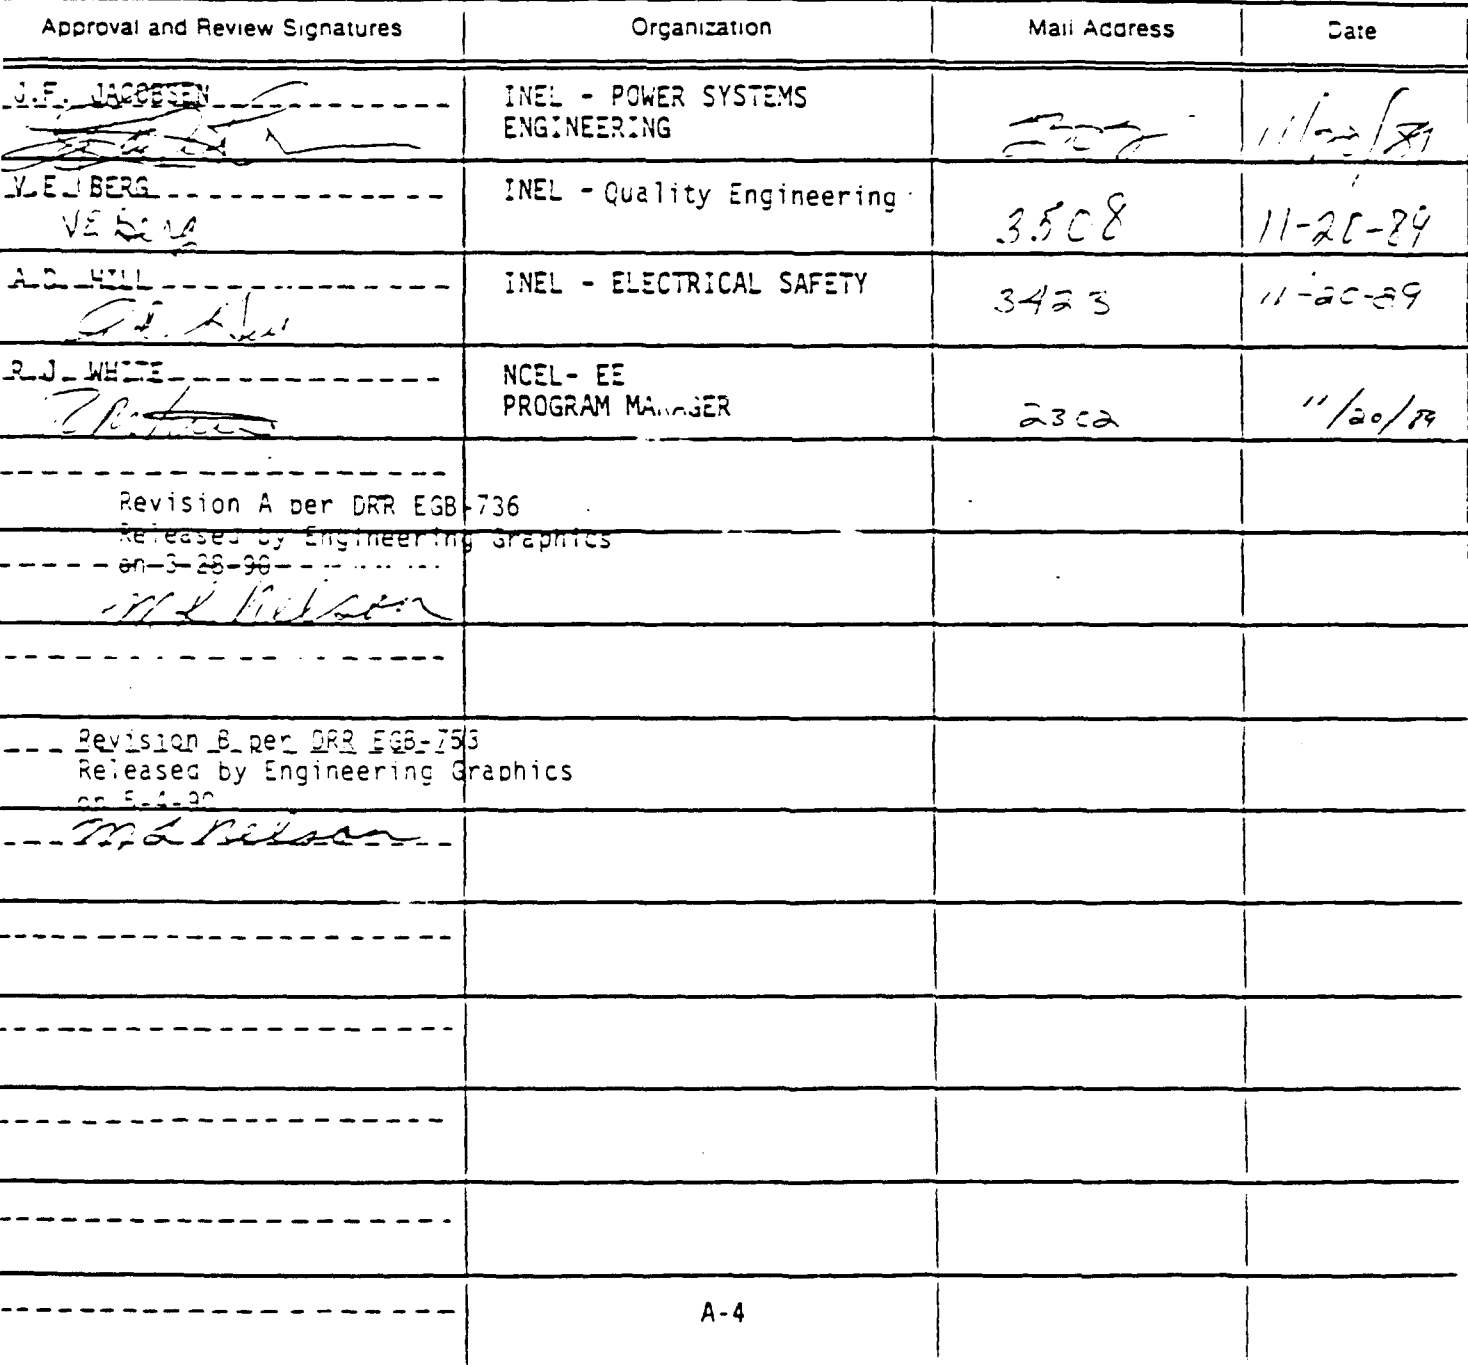 Approval and Review Signatures Organization Mail Address Date
J.F. JACOBSEN INEL - POWER SYSTEMS
ENGINEERING
V.E. BERG INEL - Quality Engineering
VE Berg 3508 11-20-89
A.D. HILL INEL - ELECTRICAL SAFETY
3423 11-20-89
R.J. WHITE NCEL- EE
PROGRAM MANAGER
2302 11/20/89
Revision A per DRR EGB-736
Released by Engineering Graphics
on 3-28-90
M L Nelson
Revision B per DRR EGB-753
Released by Engineering Graphics
on 5-4-90
M L Nelson
A-4